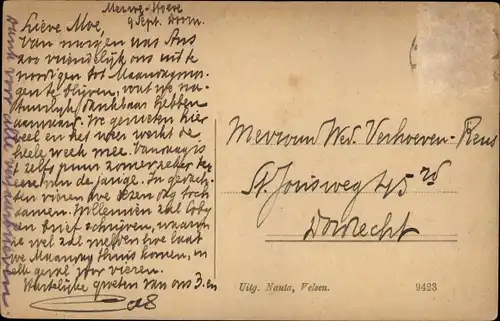 9 Sept.
Lieve Moe,
Van morgen was Ans
zoo vriendelijk ons uit te
noodigen tot Maandagmor-
gen te blijven, wat we na-
tuurlijk dankbaar hebben
aanvaard. We genieten hier
veel en het weer werkt de
heele week mee. Vandaag is
't zelfs puur zomer zeker ter
eere van de jarige. In gedach-
ten vieren we dezen dag toch
samen. Willemien zal Coby
een brief schrijven, waarin
ze wel zal melden hoe laat
we Maandag thuis komen, in
elk geval voor vieren.
Hartelijke groeten van ons 3. en
Mevrouw Wed. Verhoeven-Reus
St. Jorisweg 45 rd
Dordrecht
Uitg. Nauta, Velsen. 9423